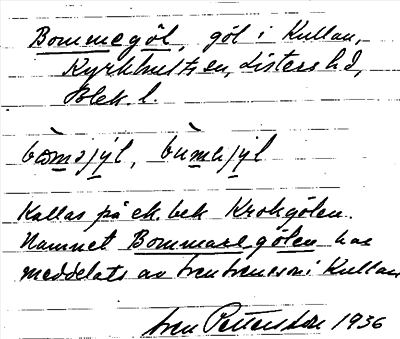 Bommegöl, göl i Kullan,
Kyrkhults sn, Listers hd,
Blek. l.
bòməjýl, bùməjýl
Kallas på ek. bek Krokgölen.
Namnet Bommaregölen har
meddelats av Sven Svensson i Kullan
Sven Pettersson 1936